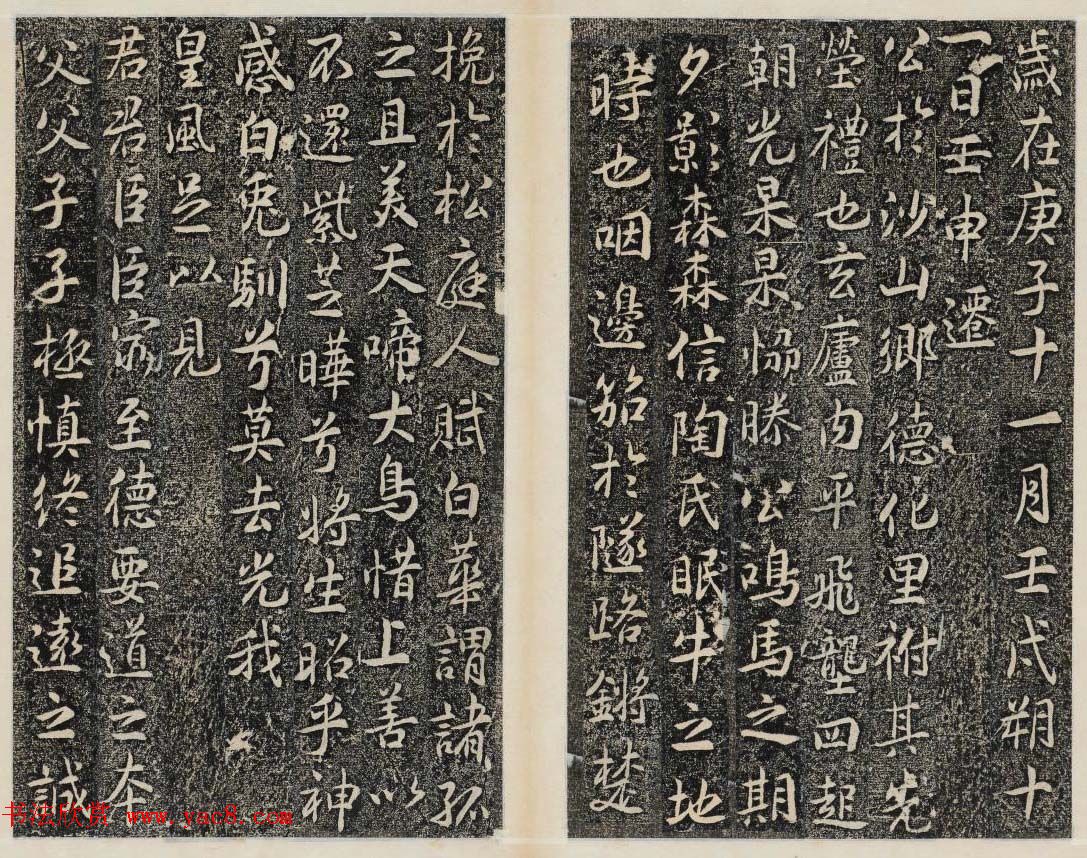 歲在庚子十一月壬戌朔十
一日壬申遷
公於沙山鄉德化里祔其先
塋禮也玄廬內平飛壟四起
朝光杲杲恊滕公鳴馬之期
夕影森森信陶氏眠牛之地
時也咽邊笳於隧路鏘楚
挽於松庭人賦白華謂諸孤
之且美天啼大鳥惜上善以
不還紫芝曄兮將生昭乎神
感白兔馴兮莫去光我
皇風足以見
君君臣臣窮至德要道之本
父父子子極慎終追遠之誠
书法欣赏 www.yac8.com